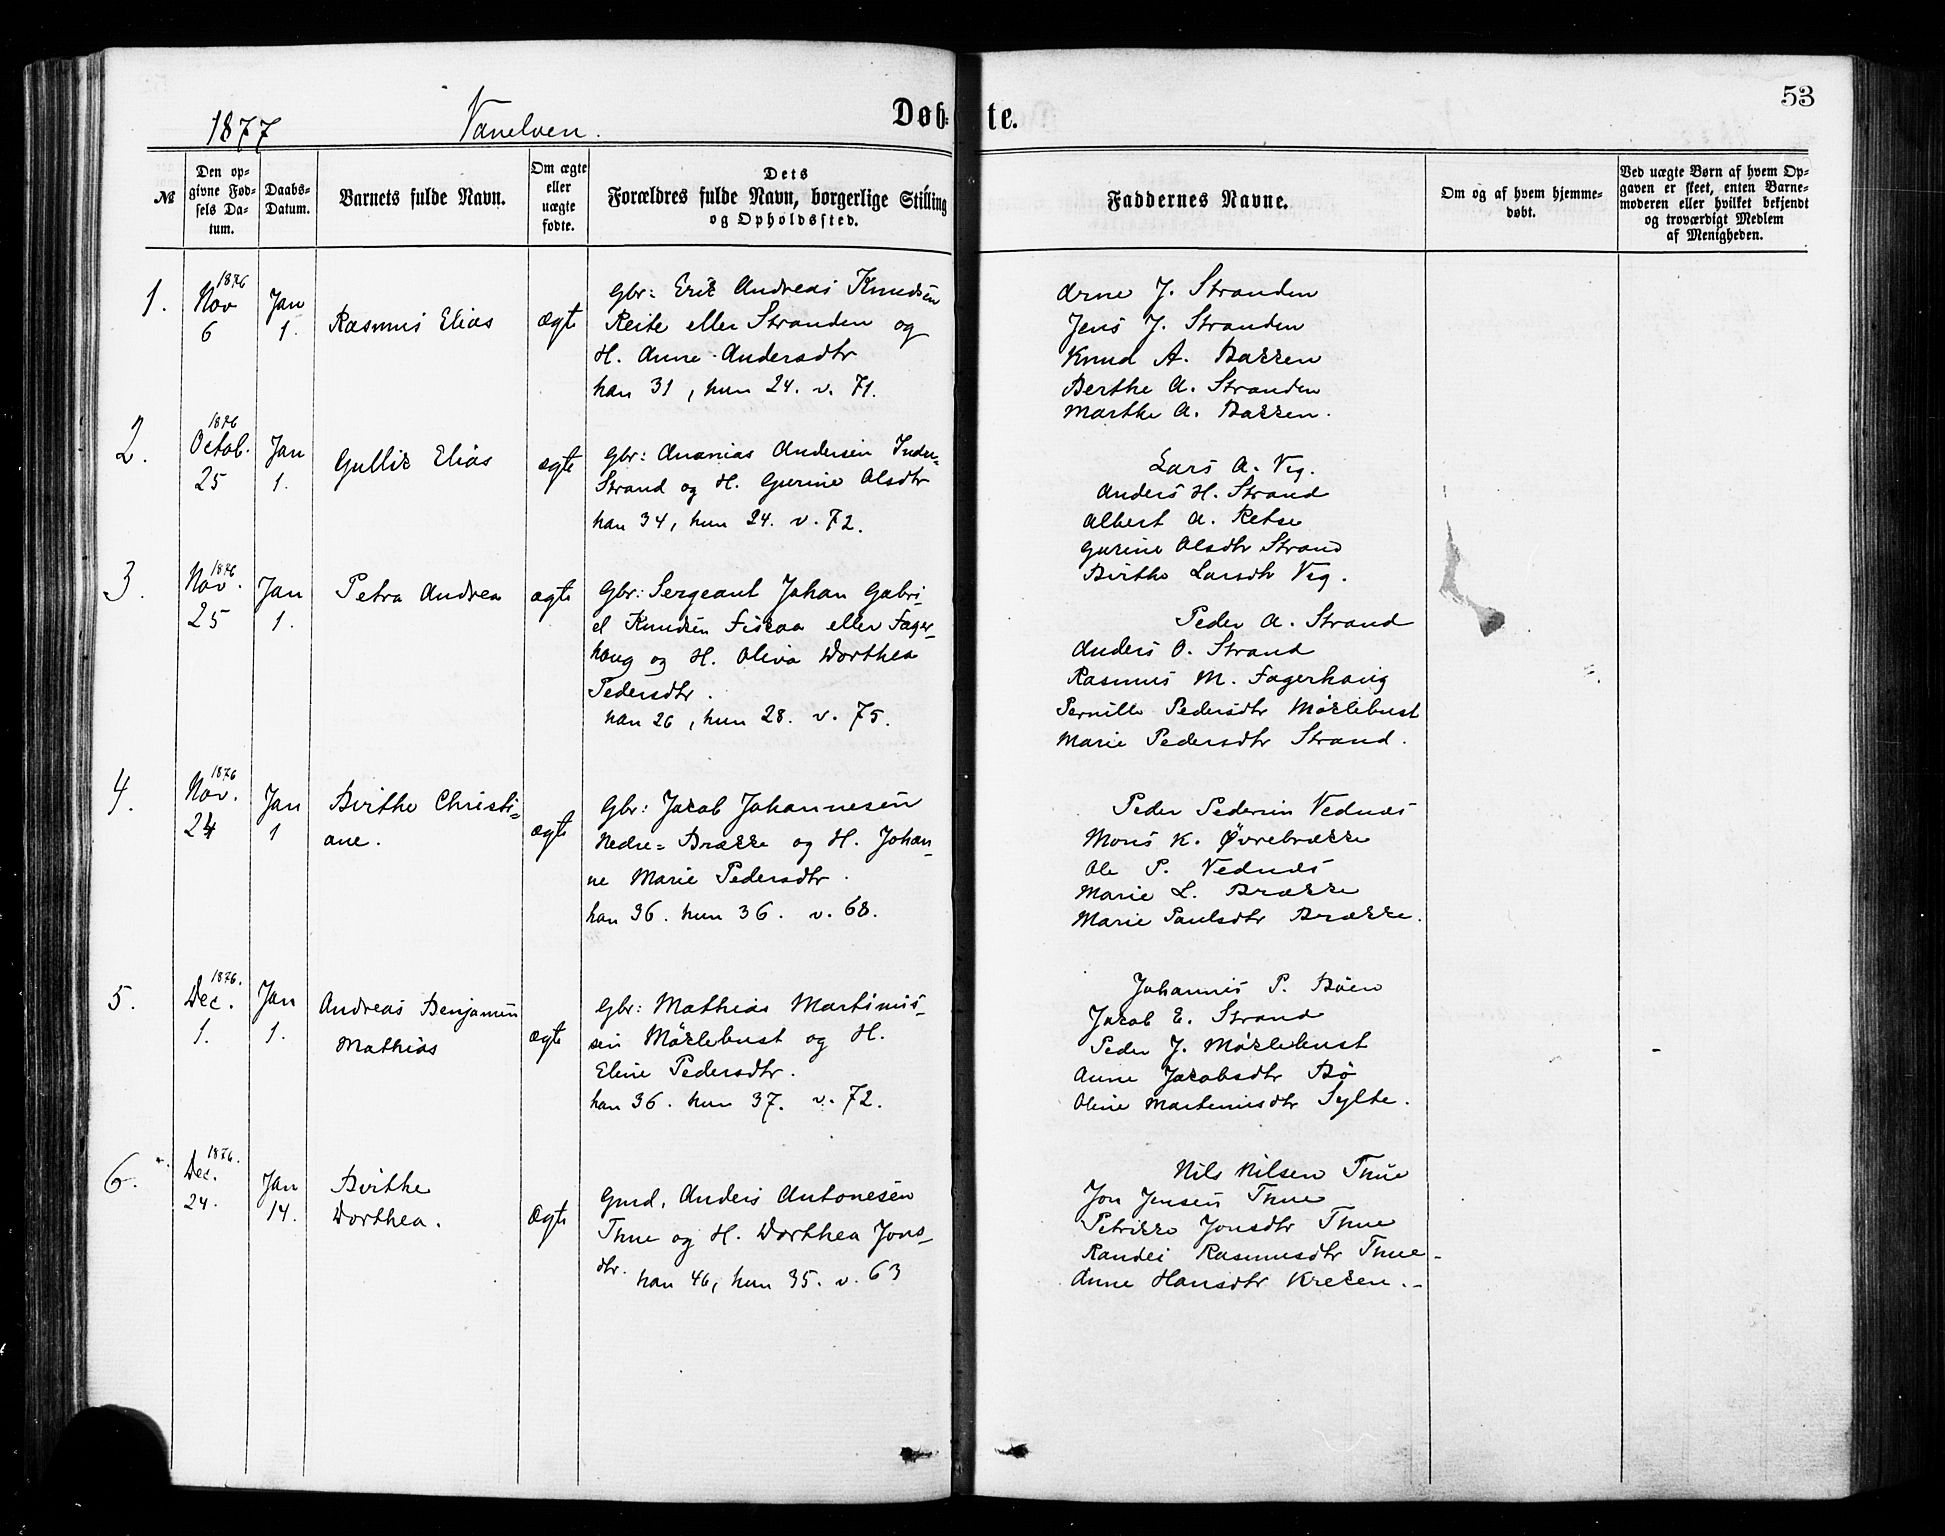 53
1877 Vanelven. Døb-te.
№
Den opgivne Fødsels Datum.
Daabs-Datum.
Barnets fulde Navn.
Om ægte eller uægte fødte.
Dets Forældres fulde Navn, borgerlige Stilling og Opholdssted.
Faddernes Navne.
Om og af hvem hjemmedøbt.
Ved uægte Børn af hvem Opgaven er skeet, enten Barnemoderen eller hvilket bekjendt og troværdigt Medlem af Menigheden.
1.
1876
Nov
6
Jan
1.
Rasmus Elias
ægte
Gbr: Erik Andreas Knudsen
Reite eller Stranden og
H. Anne Andersdtr
han 31, hun 24. v. 71.
Arne J. Stranden
Jens J. Stranden
Knud A. Bakken
Berthe A. Stranden
Marthe A. Bakken.
2.
1876
Octob.
25
Jan
1.
Gullik Elias
ægte
Gbr: Ananias Andersen Inder-
Strand og H. Gurine Olsdtr
han 34, hun 24. v. 72.
Lars A. Veg.
Anders H. Strand
Albert A. Retse
Gurine Olsdtr Strand
Birthe Larsdtr Veg.
3.
1876
Nov.
25
Jan
1.
Petra Andrea
ægte
Gbr: Sergeant Johan Gabri-
el Knudsen Fiskaa eller Fager-
haug og H. Oliva Dorthea
Pedersdtr.
han 26, hun 28. v. 75.
Peder A. Strand
Anders O. Strand
Rasmus M. Fagerhaug
Pernille Pedersdtr Mørkebust
Marie Pedersdtr Strand.
4.
1876
Nov.
24
Jan
1
Birthe Christi-
ane.
ægte
Gbr: Jakob Johannesen
Nedre-Brække og H. Johan-
ne Marie Pedersdtr.
han 36. hun 36. v. 68.
Peder Pedersen Vednæs
Mons K. Øvrebrække
Ole P. Vednæs
Marie L. Brække
Marie Paulsdtr Brække.
5.
1876.
Dec.
1.
Jan
1.
Andreas Benjamin
Mathias
ægte
Gbr: Mathias Martinus-
sen Mørkebust og H.
Eline Pedersdtr.
han 36. hun 37. v. 72.
Johannes P. Bøen
Jakob E. Strand
Peder J. Mørkebust
Anne Jakobsdtr Bø
Oline Martinusdtr Sylte.
6.
1876.
Dec.
24.
Jan
14.
Birthe
Dorthea.
Ægte
Gmd. Anders Antonesen
Thue og H. Dorthea Jons-
dtr. han 46, hun 35. v. 63
Nils Nilsen Thue
Jon Jensen Thue
Petrikke Jonsdtr Thue
Randei Rasmusdtr Thue
Anne Hansdtr Kreken.